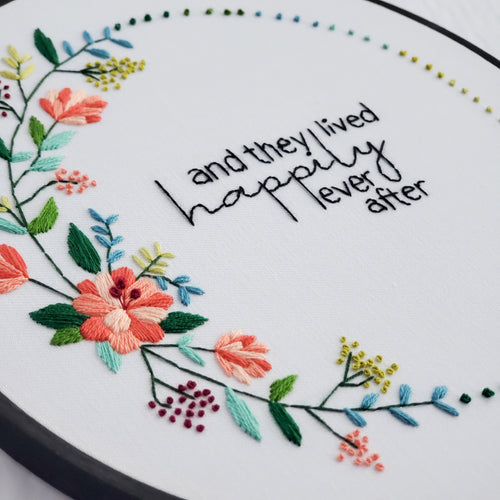 and they lived
happily
ever
after